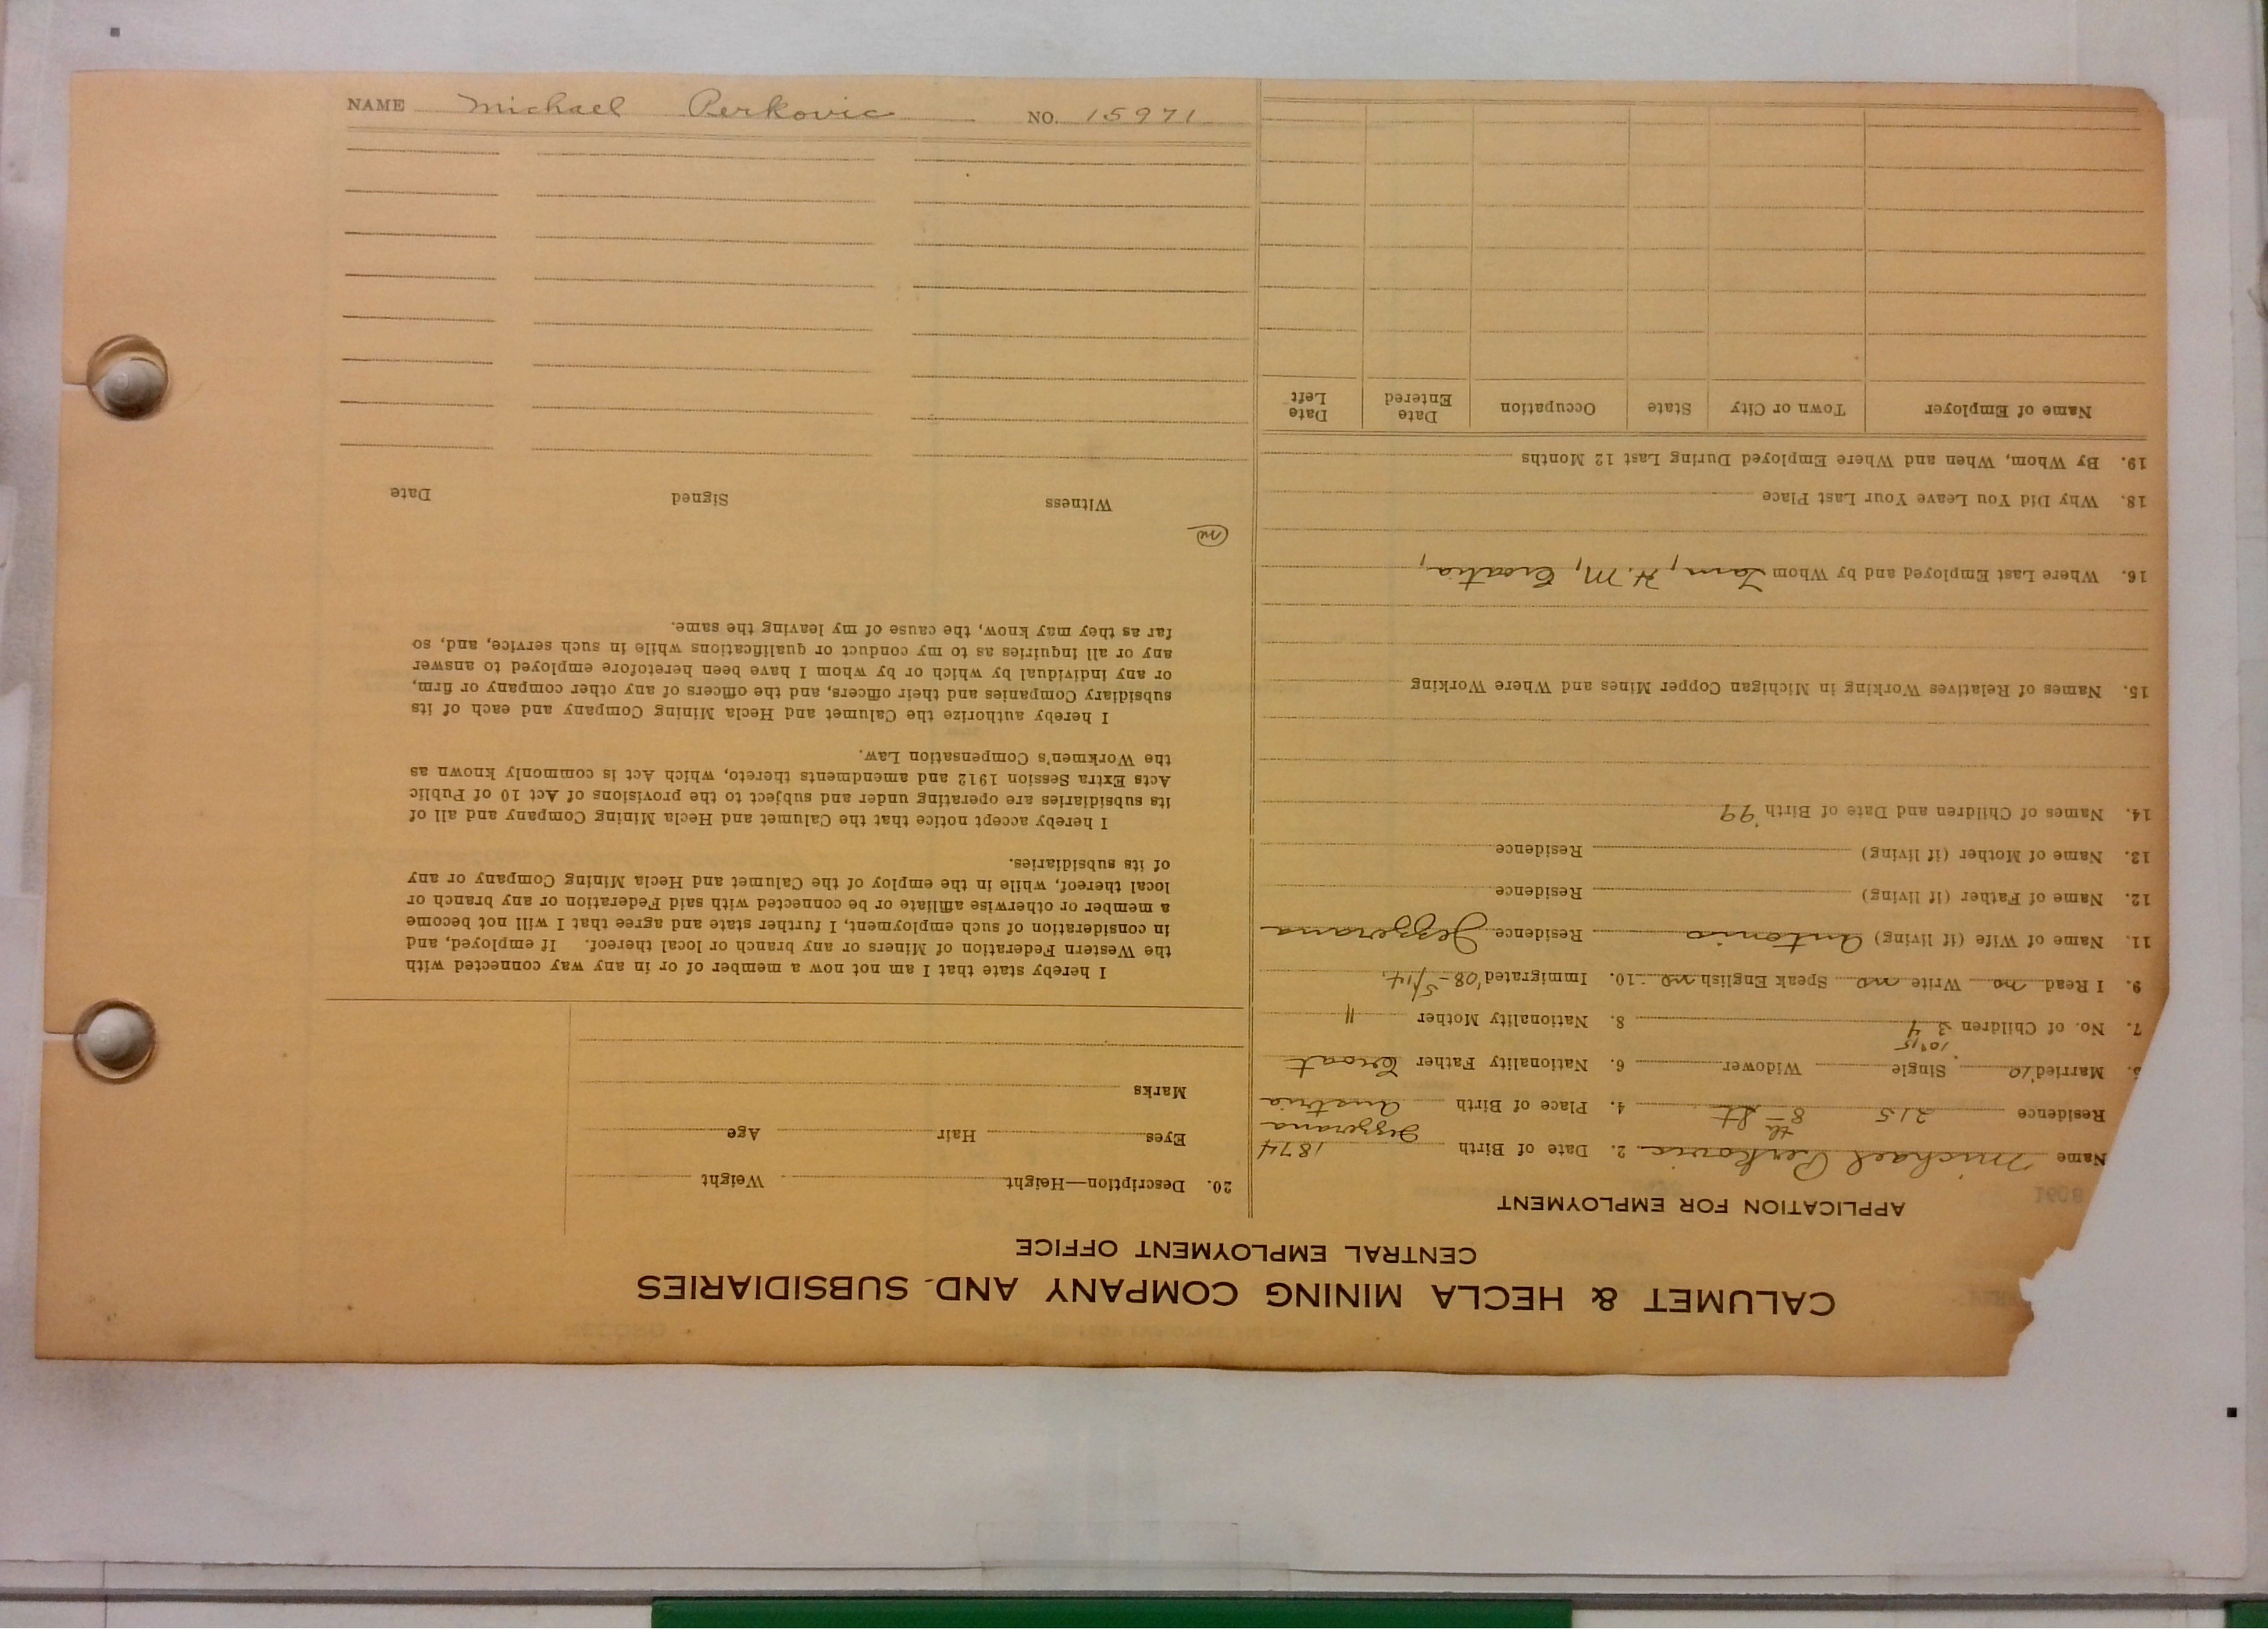 CALUMET & HECLA MINING COMPANY AND SUBSIDIARIES
CENTRAL EMPLOYMENT OFFICE
APPLICATION FOR EMPLOYMENT
Name Michael Perkovic 2. Date of Birth 1874
Residence 215 8th St 4. Place of Birth Austria
Married '10 Single Widower 6. Nationality Father Croat
7. No. of Children 3 4 8. Nationality Mother "
9. I Read no Write no Speak English no 10. Immigrated '08 - 5/14,
11. Name of Wife (if living) Antonio Residence Jezzerana
12. Name of Father (if living) Residence
13. Name of Mother (if living) Residence
14. Names of Children and Date of Birth
15. Names of Relatives Working in Michigan Copper Mines and Where Working
16. Where Last Employed and by Whom H. M, Croatia,
18. Why Did You Leave Your Last Place
19. By Whom, When and Where Employed During Last 12 Months
Name of Employer Town or City State Occupation Date Entered Date Left
20. Description—Height Weight
Eyes Hair Age
Marks
I hereby state that I am not now a member of or in any way connected with
the Western Federation of Miners or any branch or local thereof. If employed, and
in consideration of such employment, I further state and agree that I will not become
a member or otherwise affiliate or be connected with said Federation or any branch or
local thereof, while in the employ of the Calumet and Hecla Mining Company or any
of its subsidiaries.
I hereby accept notice that the Calumet and Hecla Mining Company and all of
its subsidiaries are operating under and subject to the provisions of Act 10 of Public
Acts Extra Session 1912 and amendments thereto, which Act is commonly known as
the Workmen's Compensation Law.
I hereby authorize the Calumet and Hecla Mining Company and each of its
subsidiary Companies and their officers, and the officers of any other company or firm,
or any individual by which or by whom I have been heretofore employed to answer
any or all inquiries as to my conduct or qualifications while in such service, and, so
far as they may know, the cause of my leaving the same.
Witness Signed Date
NAME Michael Perkovic NO. 15971